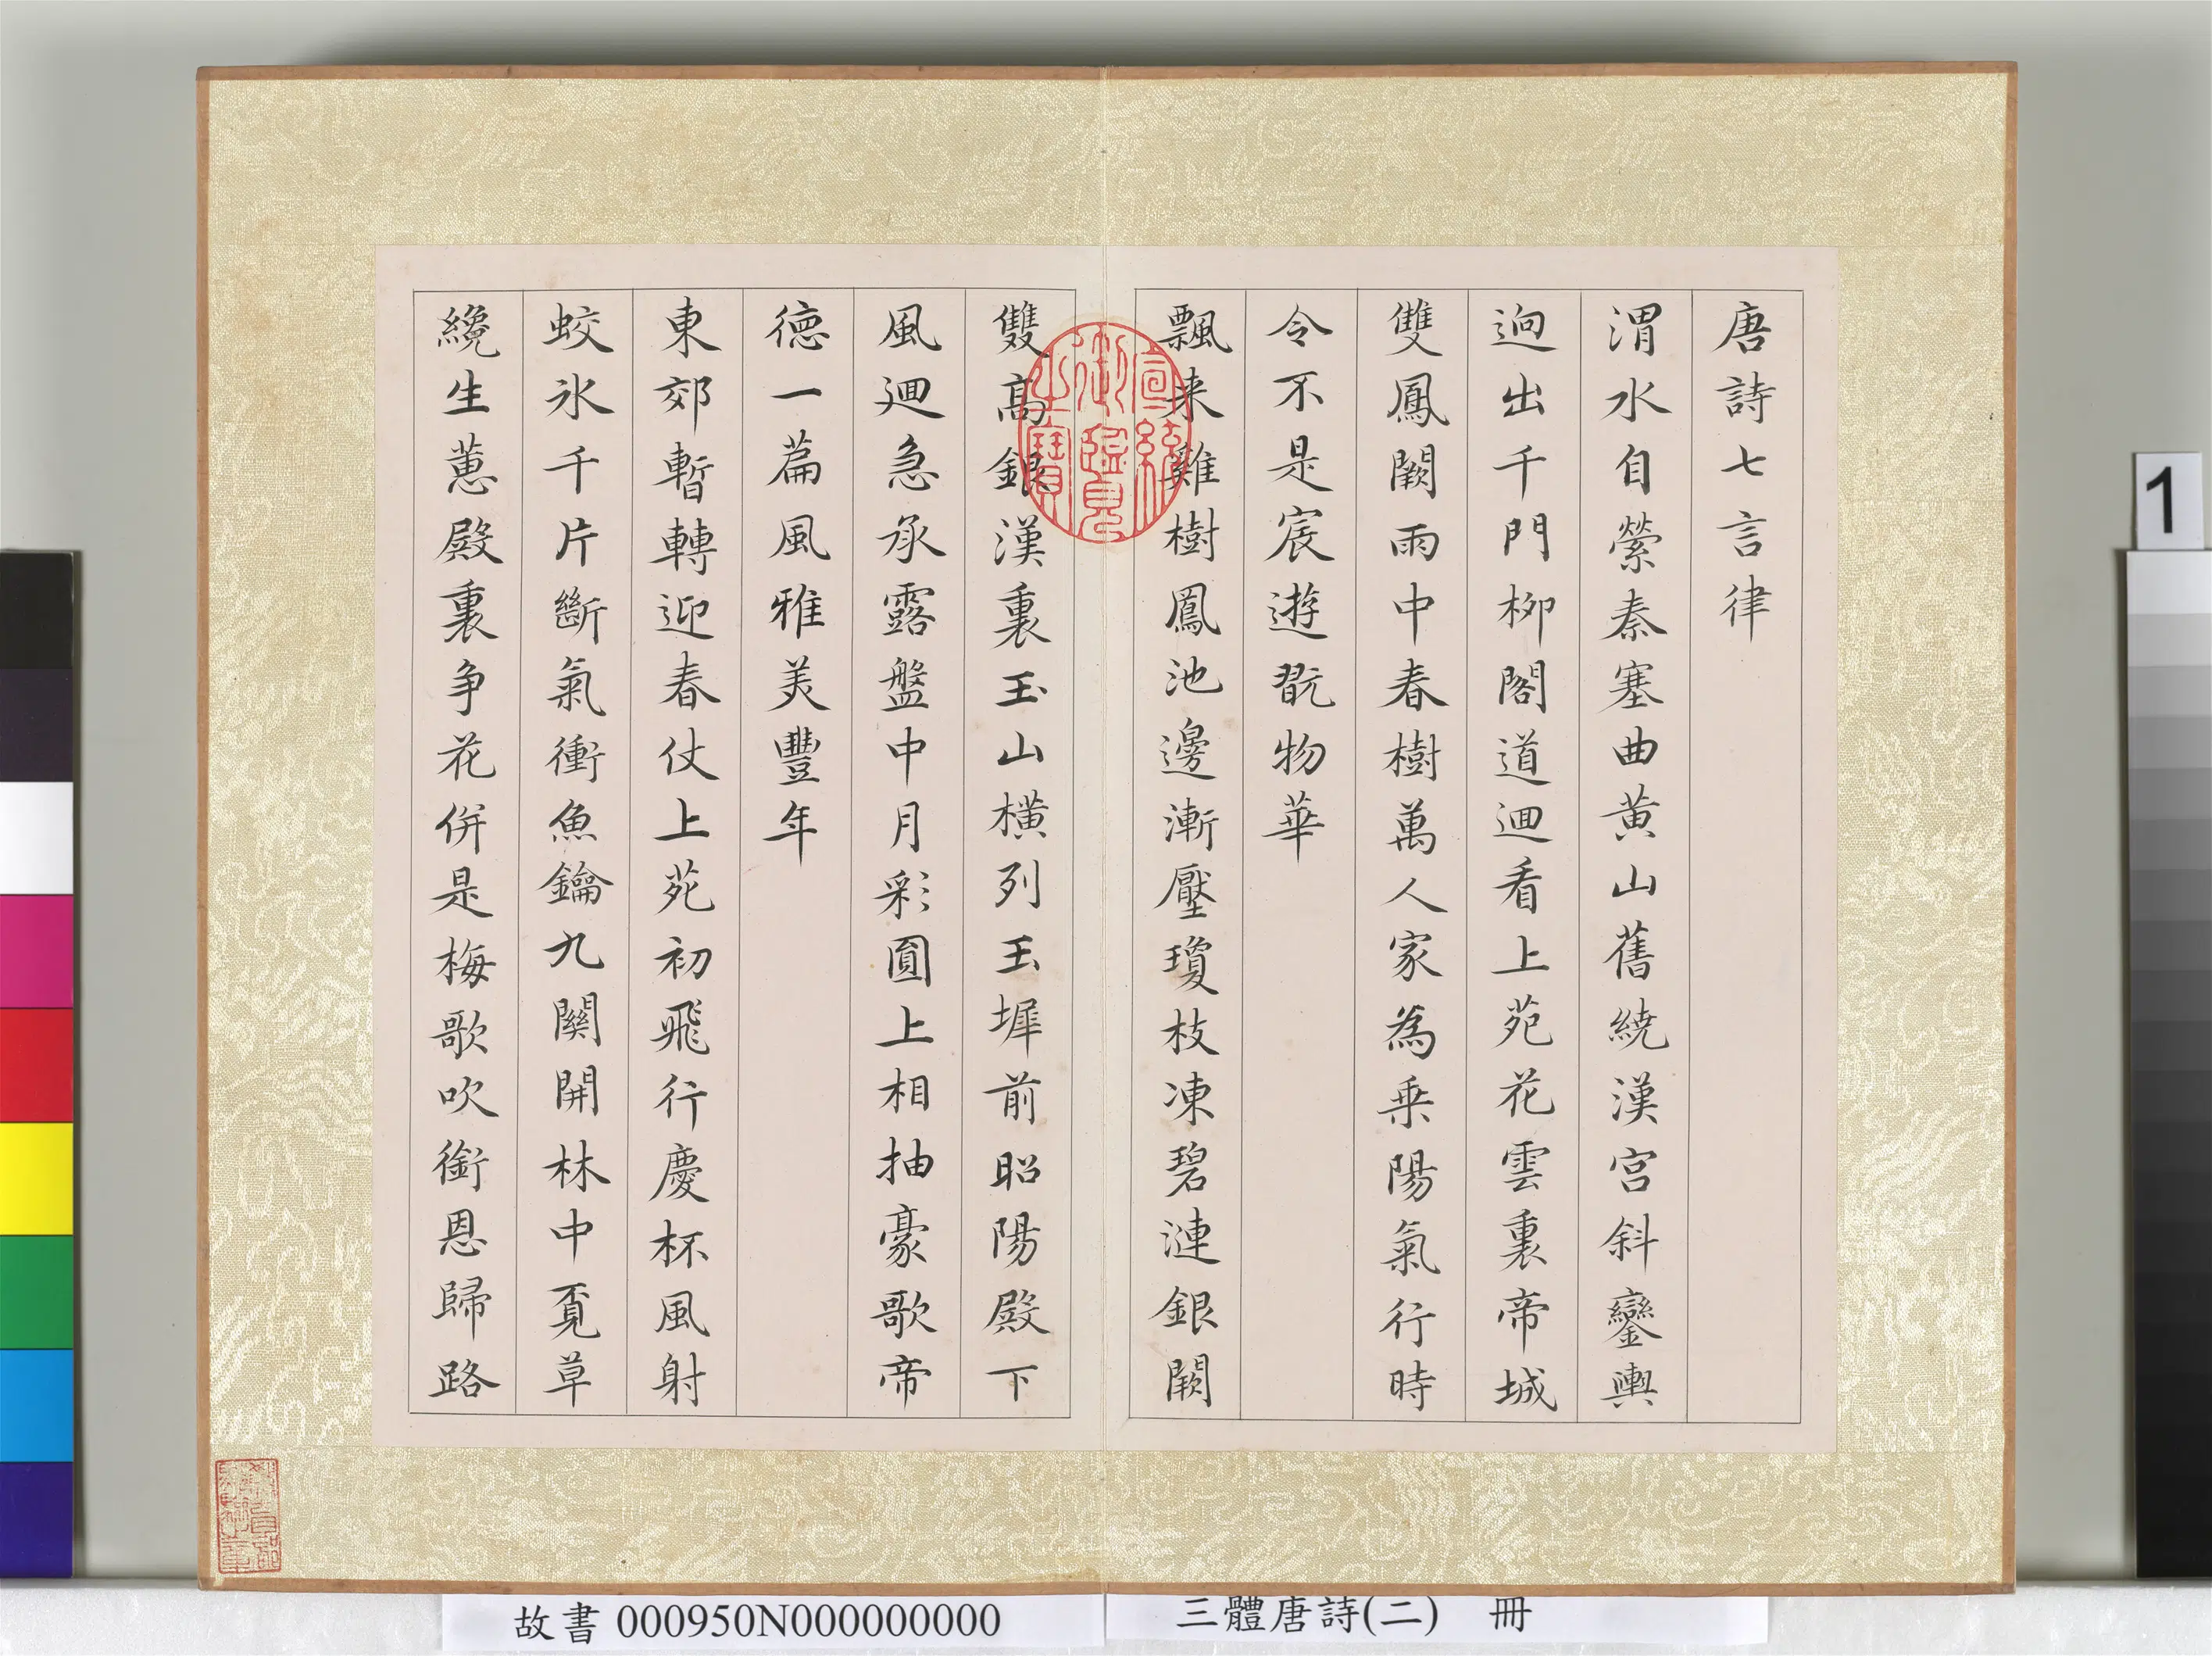 唐詩七言律
渭水自縈秦塞曲黄山舊繞漢宫斜鑾輿
逈出千門柳閣道迴看上苑花雲裏帝城
雙鳳闕雨中春樹萬人家為乗陽氣行時
令不是宸遊翫物華
飄来雞樹鳳池邊漸壓瓊枝凍碧漣銀闕
雙髙銀漢裏玉山横列玉墀前昭陽殿下
風迴急承露盤中月彩圓上相抽豪歌帝
德一篇風雅美豐年
東郊暫轉迎春仗上苑初飛行慶杯風射
蛟氷千片斷氣衝魚鑰九關開林中覔草
纔生蕙殿裏争花併是梅歌吹銜恩歸路
宣統御覽之寶
1
故書 000950N000000000
三體唐詩(二) 冊